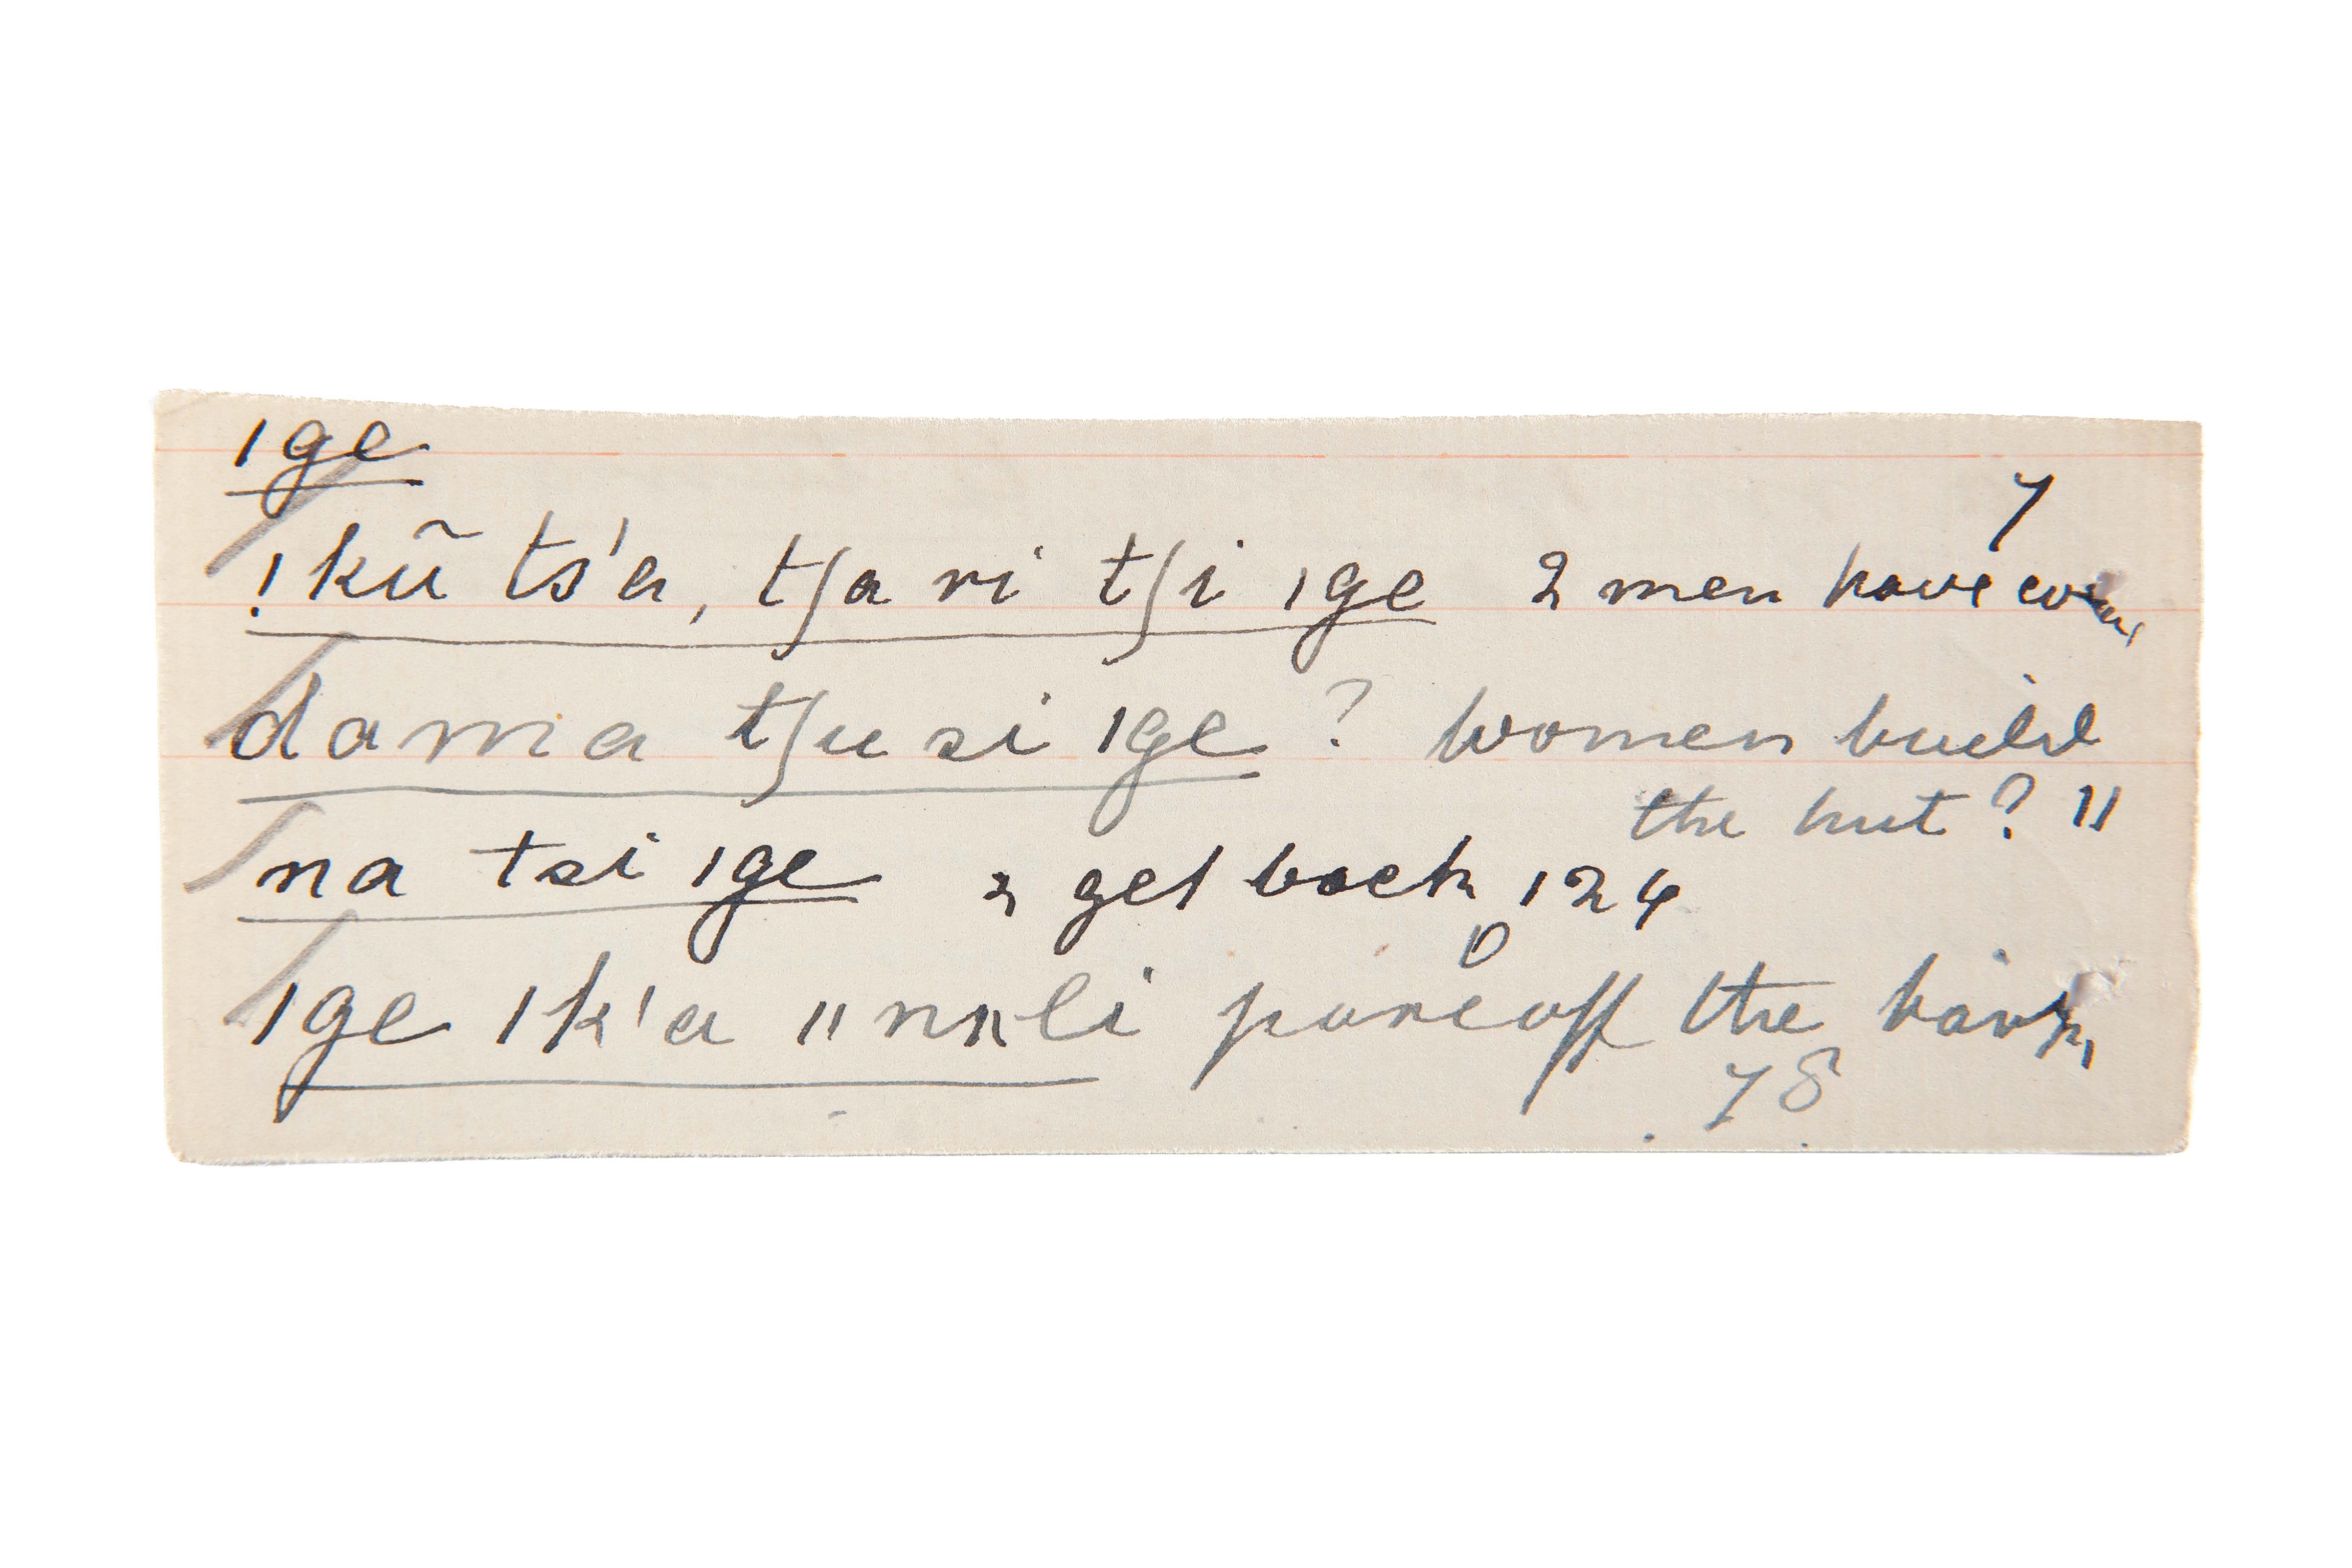 ǀge
7
!kũ ts'a, tʃa ri tʃi ǀge 2 men have come
dama tʃu si ǀge ? women build
the hut ? 11
na tsi ǀge get back 124
10
ǀge ǀk'a ǁnǁli pare off the bark,
78